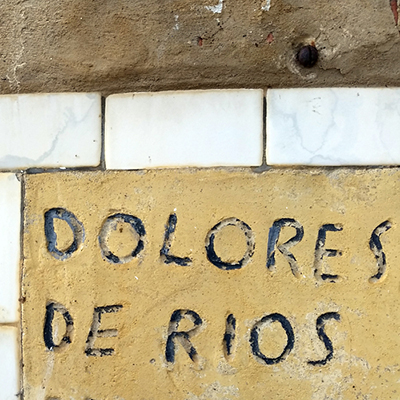 DOLORES
DE RIOS